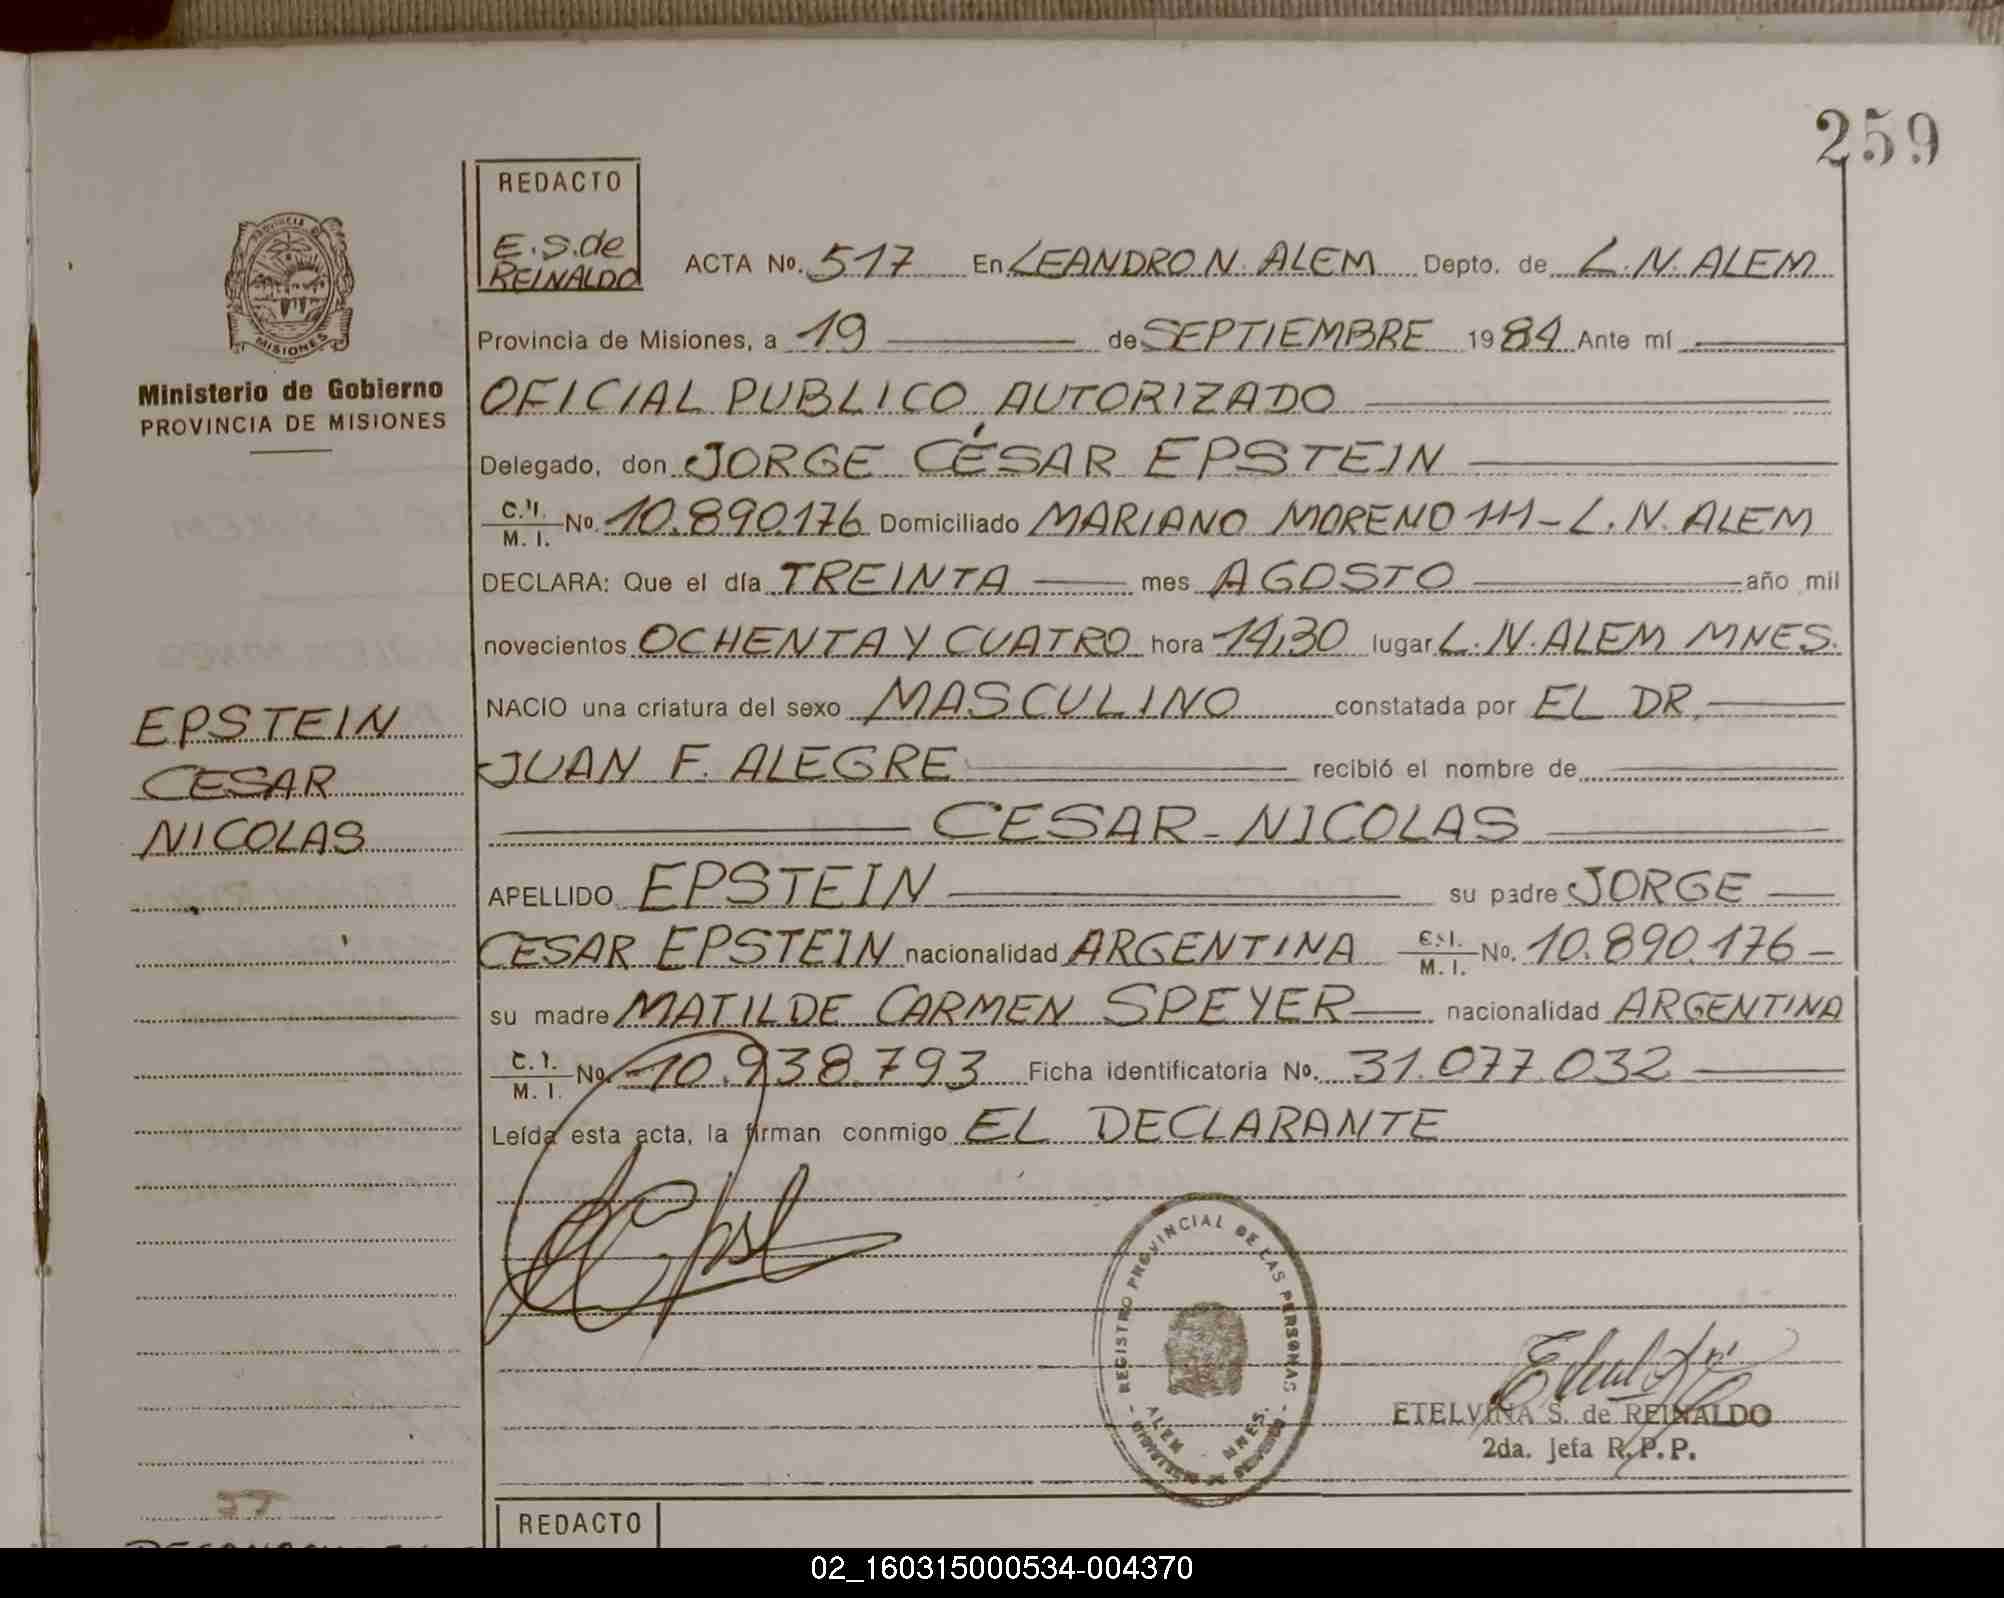 259
REDACTO
E.S.de
REINALDO
PROVINCIA D
MISIONES
Ministerio de Gobierno
PROVINCIA DE MISIONES
ACTA Nº. 517 En LEANDRO N. ALEM Depto. de L.N. ALEM
Provincia de Misiones, a 19 de SEPTIEMBRE 1984 Ante mí
OFICIAL PUBLICO AUTORIZADO
Delegado, don JORGE CÉSAR EPSTEIN
C.I. M. I. Nº. 10.890.176 Domiciliado MARIANO MORENO 111 - L.N. ALEM
DECLARA: Que el día TREINTA mes AGOSTO año mil
novecientos OCHENTA Y CUATRO hora 14,30 lugar L.N. ALEM MNES.
NACIO una criatura del sexo MASCULINO constatada por EL DR.
JUAN F. ALEGRE recibió el nombre de
CESAR - NICOLAS
APELLIDO EPSTEIN su padre JORGE
CESAR EPSTEIN nacionalidad ARGENTINA C.I. M. I. Nº. 10.890.176 -
su madre MATILDE CARMEN SPEYER nacionalidad ARGENTINA
C. I. M. I. Nº. 10.938.793 Ficha identificatoria Nº. 31.077.032
Leída esta acta, la firman conmigo EL DECLARANTE
EPSTEIN
CESAR
NICOLAS
- REGISTRO PROVINCIAL DE LAS PERSONAS -
ALEM - MNES.
ETELVINA S. de REINALDO
2da. Jefa R.P.P.
REDACTO
02_160315000534-004370